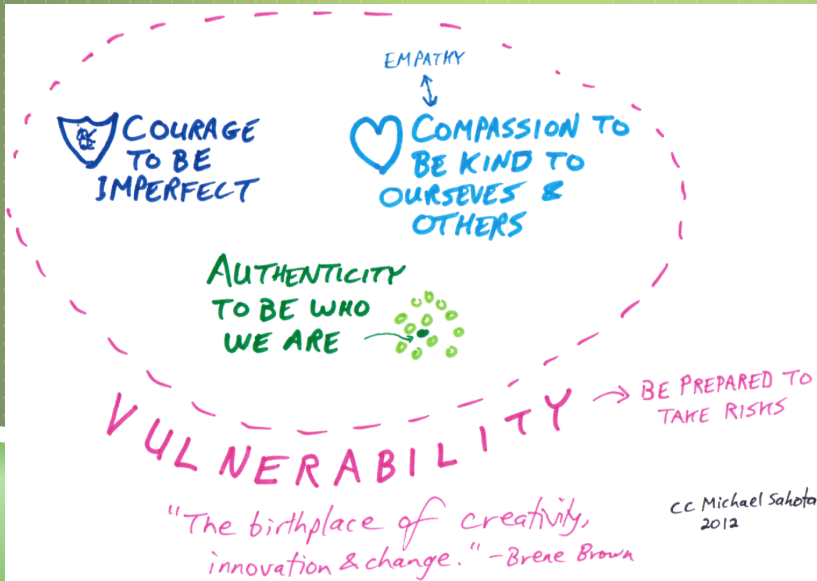 EMPATHY
COURAGE
TO BE
IMPERFECT
COMPASSION TO
BE KIND TO
OURSEVES &
OTHERS
AUTHENTICITY
TO BE WHO
WE ARE
VULNERABILITY
BE PREPARED TO
TAKE RISKS
"The birthplace of creativity,
innovation & change." - Brene Brown
CC Michael Sahota
2012